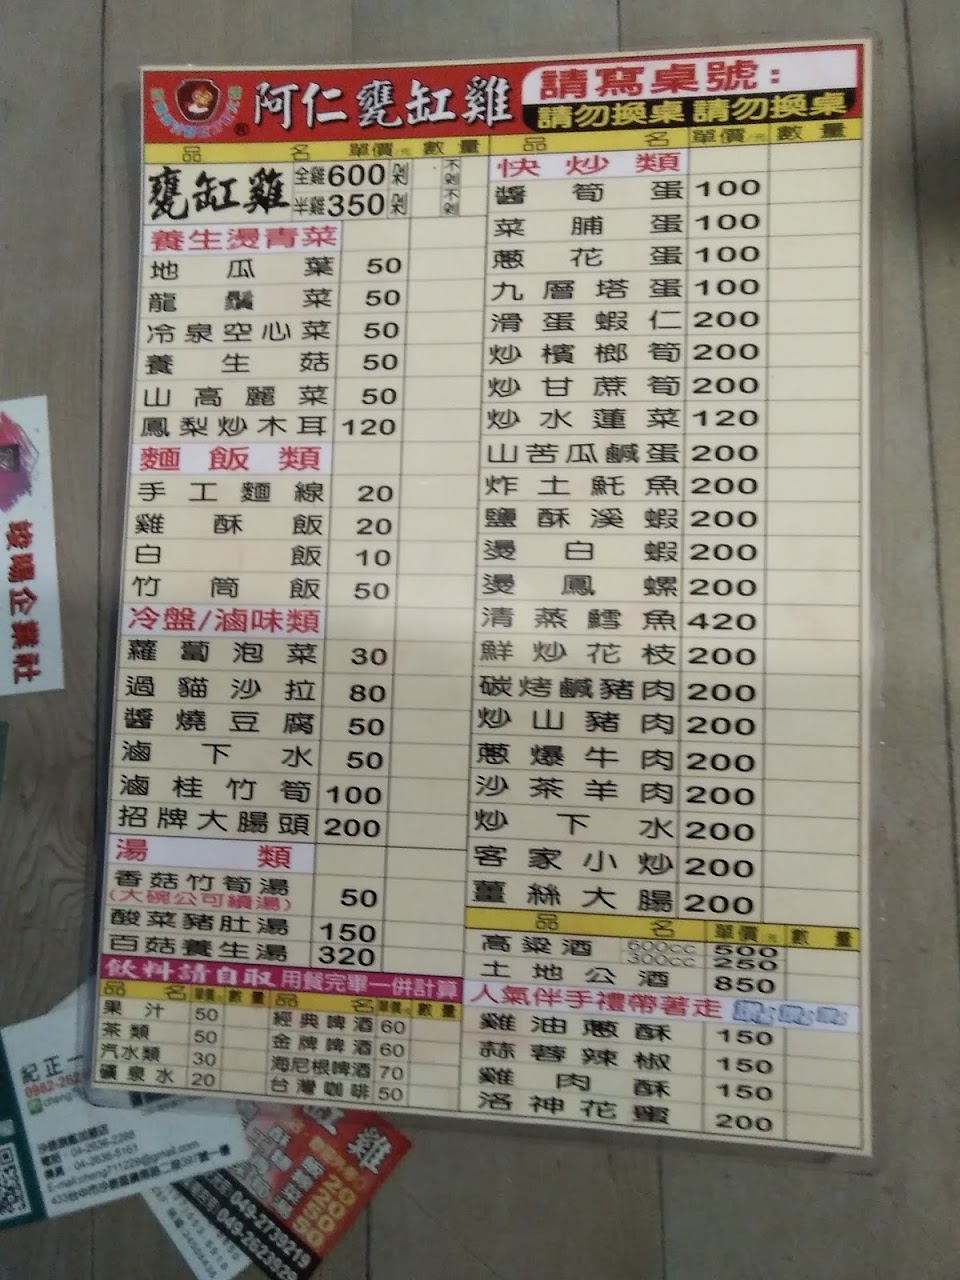 阿仁甕缸雞
請寫桌號:
請勿換桌 請勿換桌
品名 單價/元 數量
甕缸雞 全雞600 剁 不剁
半雞350 剁 不剁
養生燙青菜
地瓜葉 50
龍鬚菜 50
冷泉空心菜 50
養生菇 50
山高麗菜 50
鳳梨炒木耳 120
麵飯類
手工麵線 20
雞酥飯 20
白飯 10
竹筒飯 50
冷盤/滷味類
蘿蔔泡菜 30
過貓沙拉 80
醬燒豆腐 50
滷下水 50
滷桂竹筍 100
招牌大腸頭 200
湯類
香菇竹筍湯 50
(大碗公可續湯)
酸菜豬肚湯 150
百菇養生湯 320
飲料請自取 用餐完畢一併計算
品名 單價/元 數量 品名 單價/元 數量
果汁 50 經典啤酒 60
茶類 50 金牌啤酒 60
汽水類 30 海尼根啤酒 70
礦泉水 20 台灣咖啡 50
品名 單價/元 數量
快炒類
醬筍蛋 100
菜脯蛋 100
蔥花蛋 100
九層塔蛋 100
滑蛋蝦仁 200
炒檳榔筍 200
炒甘蔗筍 200
炒水蓮菜 120
山苦瓜鹹蛋 200
炸土魠魚 200
鹽酥溪蝦 200
燙白蝦 200
燙鳳螺 200
清蒸鱈魚 420
鮮炒花枝 200
碳烤鹹豬肉 200
炒山豬肉 200
蔥爆牛肉 200
沙茶羊肉 200
炒下水 200
客家小炒 200
薑絲大腸 200
品名 單價/元 數量
高粱酒 600cc 500
300cc 250
土地公酒 850
人氣伴手禮帶著走
雞油蔥酥 150
蒜蓉辣椒 150
雞肉酥 150
洛神花蜜 200
埈陽企業社
紀正一
電話:04-2636-2288
傳真:04-2636-5161
049-2739219